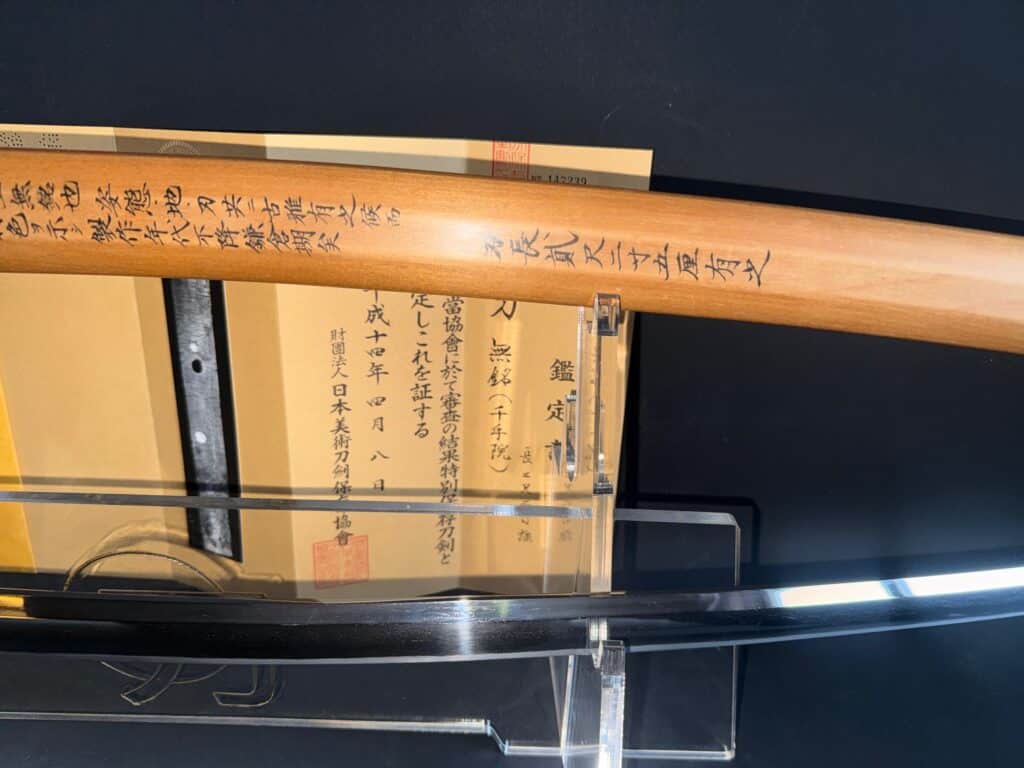 無銘也 姿態・地・刃共ニ古雅有之候而
色ヲ示シ製作年代不降鎌倉期矣
刃長貳尺二寸五厘有之
№ 147239
鑑定
刀 無銘(千手院)
當協會に於て審査の結果特別保存刀剣と
定しこれを証する
平成十四年四月八日
財團法人日本美術刀剣保存協會